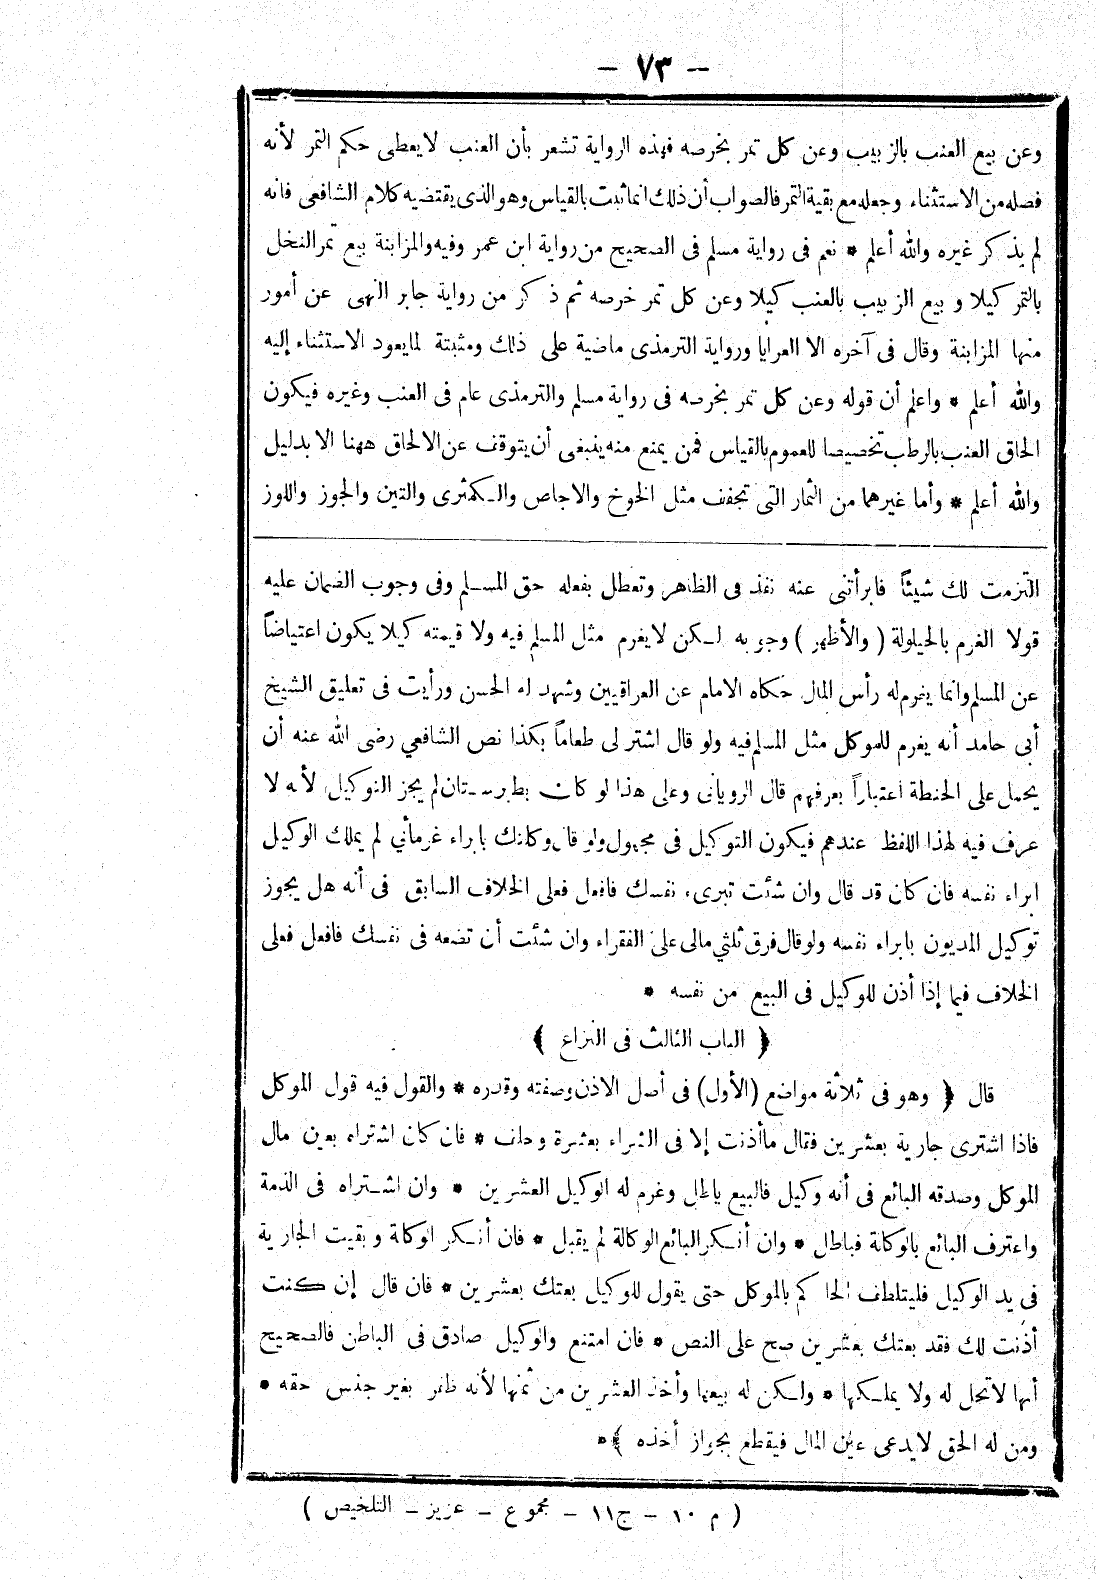 - ٧٣ -
وعن بيع العنب بالزبيب وعن كل تمر بخرصه فهذه الرواية تشعر بأن العنب لايعطى حكم التمر لأنه
فصله من الاستثناء وجعله مع بقية التمر فالصواب أن ذلك انما ثبت بالقياس وهو الذى يقتضيه كلام الشافعى فانه
لم يذكر غيره والله أعلم * نعم فى رواية مسلم فى الصحيح من رواية ابن عمر وفيه والمزابنة بيع تمر النخل
بالتمر كيلا وبيع الزبيب بالعنب كيلا وعن كل تمر خرصه ثم ذكر من رواية جابر النهى عن أمور
منها المزابنة وقال فى آخره الا العرايا ورواية الترمذى ماضية على ذلك ومثبتة لما يعود الاستثناء إليه
والله أعلم * واعلم أن قوله وعن كل تمر بخرصه فى رواية مسلم والترمذى عام فى العنب وغيره فيكون
الحاق العنب بالرطب تخصيصا للعموم بالقياس فمن يمنع منه ينبغى أن يتوقف عن الالحاق ههنا الا بدليل
والله أعلم * وأما غيرهما من الثمار التى تجفف مثل الخوخ والاجاص والكمثرى والتين والجوز واللوز
التزمت لك شيئاً فابرأتنى عنه نفذ فى الظاهر وتعطل بفعله حق المسلم وفى وجوب الضمان عليه
قولا الغرم بالحيلولة ( والأظهر ) وجوبه لكن لا يغرم مثل المسلم فيه ولا قيمته كيلا يكون اعتياضاً
عن المسلم وانما يغرم له رأس المال حكاه الامام عن العراقيين وشهد له الحسن ورأيت فى تعليق الشيخ
أبى حامد أنه يغرم للموكل مثل المسلم فيه ولو قال اشتر لى طعاماً بكذا نص الشافعي رضى الله عنه أن
يحمل على الحنطة اعتباراً بعرفهم قال الرويانى وعلى هذا لو كان بطبرستان لم يجز التوكيل لأنه لا
عرف فيه لهذا اللفظ عندهم فيكون التوكيل فى مجهول ولو قال وكلتك بابراء غرمائي لم يملك الوكيل
ابراء نفسه فان كان قد قال وان شئت تبرىء نفسك فافعل فعلى الخلاف السابق فى أنه هل يجوز
توكيل المديون بابراء نفسه ولو قال فرق ثلثي مالى على الفقراء وان شئت أن تضعه فى نفسك فافعل فعلى
الخلاف فيما إذا أذن للوكيل فى البيع من نفسه *
﴿ الباب الثالث فى النزاع ﴾
قال ﴿ وهو فى ثلاثة مواضع (الأول) فى أصل الاذن وصفته وقدره * والقول فيه قول الموكل
فاذا اشترى جارية بعشرين فقال ما أذنت إلا فى الشراء بعشرة وحلف * فان كان اشتراه بعين مال
الموكل وصدقه البائع فى أنه وكيل فالبيع باطل وغرم له الوكيل العشرين * وان اشتراه فى الذمة
واعترف البائع بالوكالة فباطل * وان أنكر البائع الوكالة لم يقبل * فان أنكر الوكالة وبقيت الجارية
فى يد الوكيل فليتلطف الحاكم بالموكل حتى يقول للوكيل بعتك بعشرين * فان قال إن كنت
أذنت لك فقد بعتك بعشرين صح على النص * فان امتنع والوكيل صادق فى الباطن فالصحيح
أنها لا تحل له ولا يملكها * ولكن له بيعها وأخذ العشرين من ثمنها لأنه ظفر بغير جنس حقه *
ومن له الحق لا يدعى عين المال فيقطع بجواز أخذه ﴾*
( م ١٠ - ج ١١ - مجموع - عزيز - التلخيص )